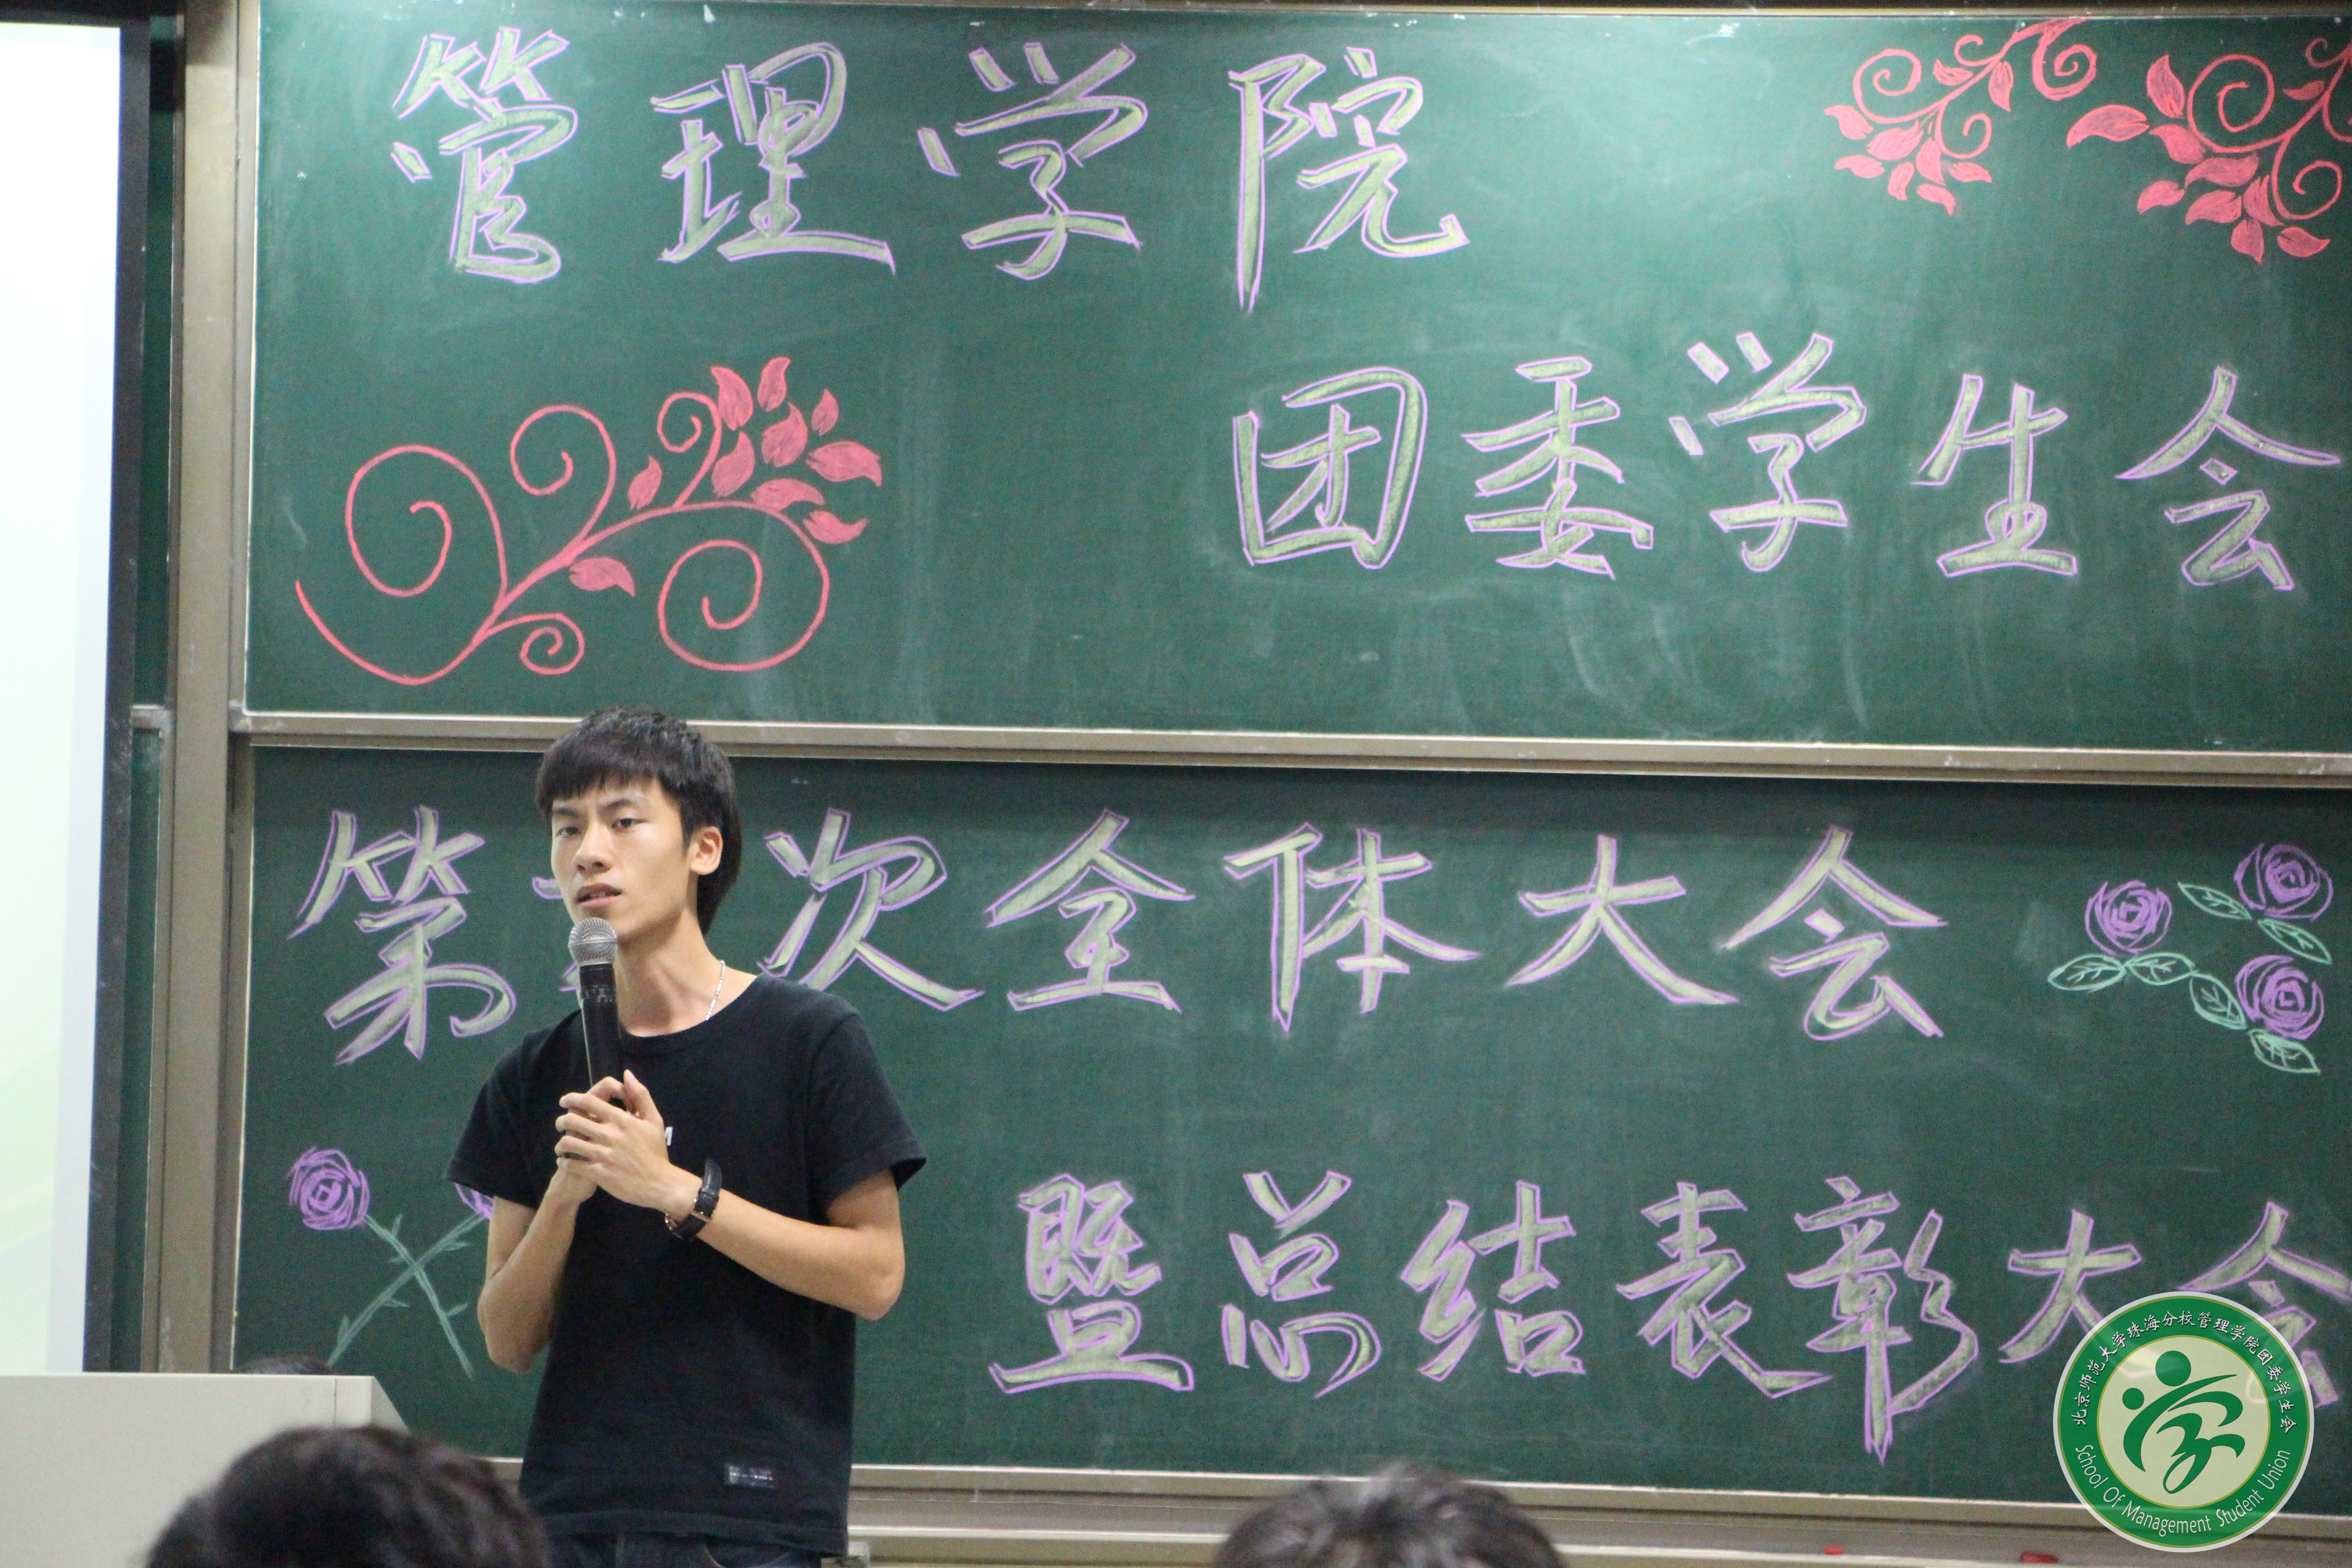 管理学院
团委学生会
第 次全体大会
暨总结表彰大会
北京师范大学珠海分校管理学院团委学生会
School Of Management Student Union